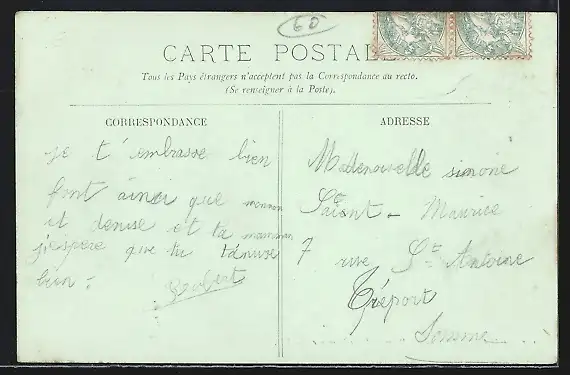 60
CARTE POSTALE
Tous les Pays étrangers n'acceptent pas la Correspondance au recto.
(Se renseigner à la Poste).
CORRESPONDANCE
je t'embrasse bien
font ainsi que mennon
et denise et ta mamman
j'espère que tu t'anuse
bien.
ADRESSE
Mademoiselle simone
Saiont - Maurice
7 rue St Antoine
Tréport
Somme